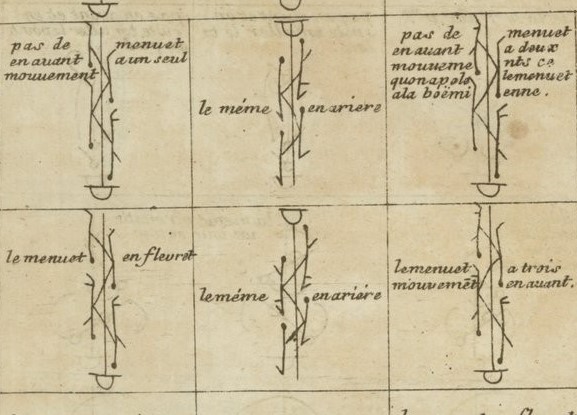 pas de menuet
en auant a un seul
mouuement
le méme en ariere
pas de menuet
en auant a deux
mouueme nts ce
quonapele lemenuet
ala böëmi enne.
le menuet en fleuret
le méme en ariére
lemenuet a trois
mouvemēt en auant.